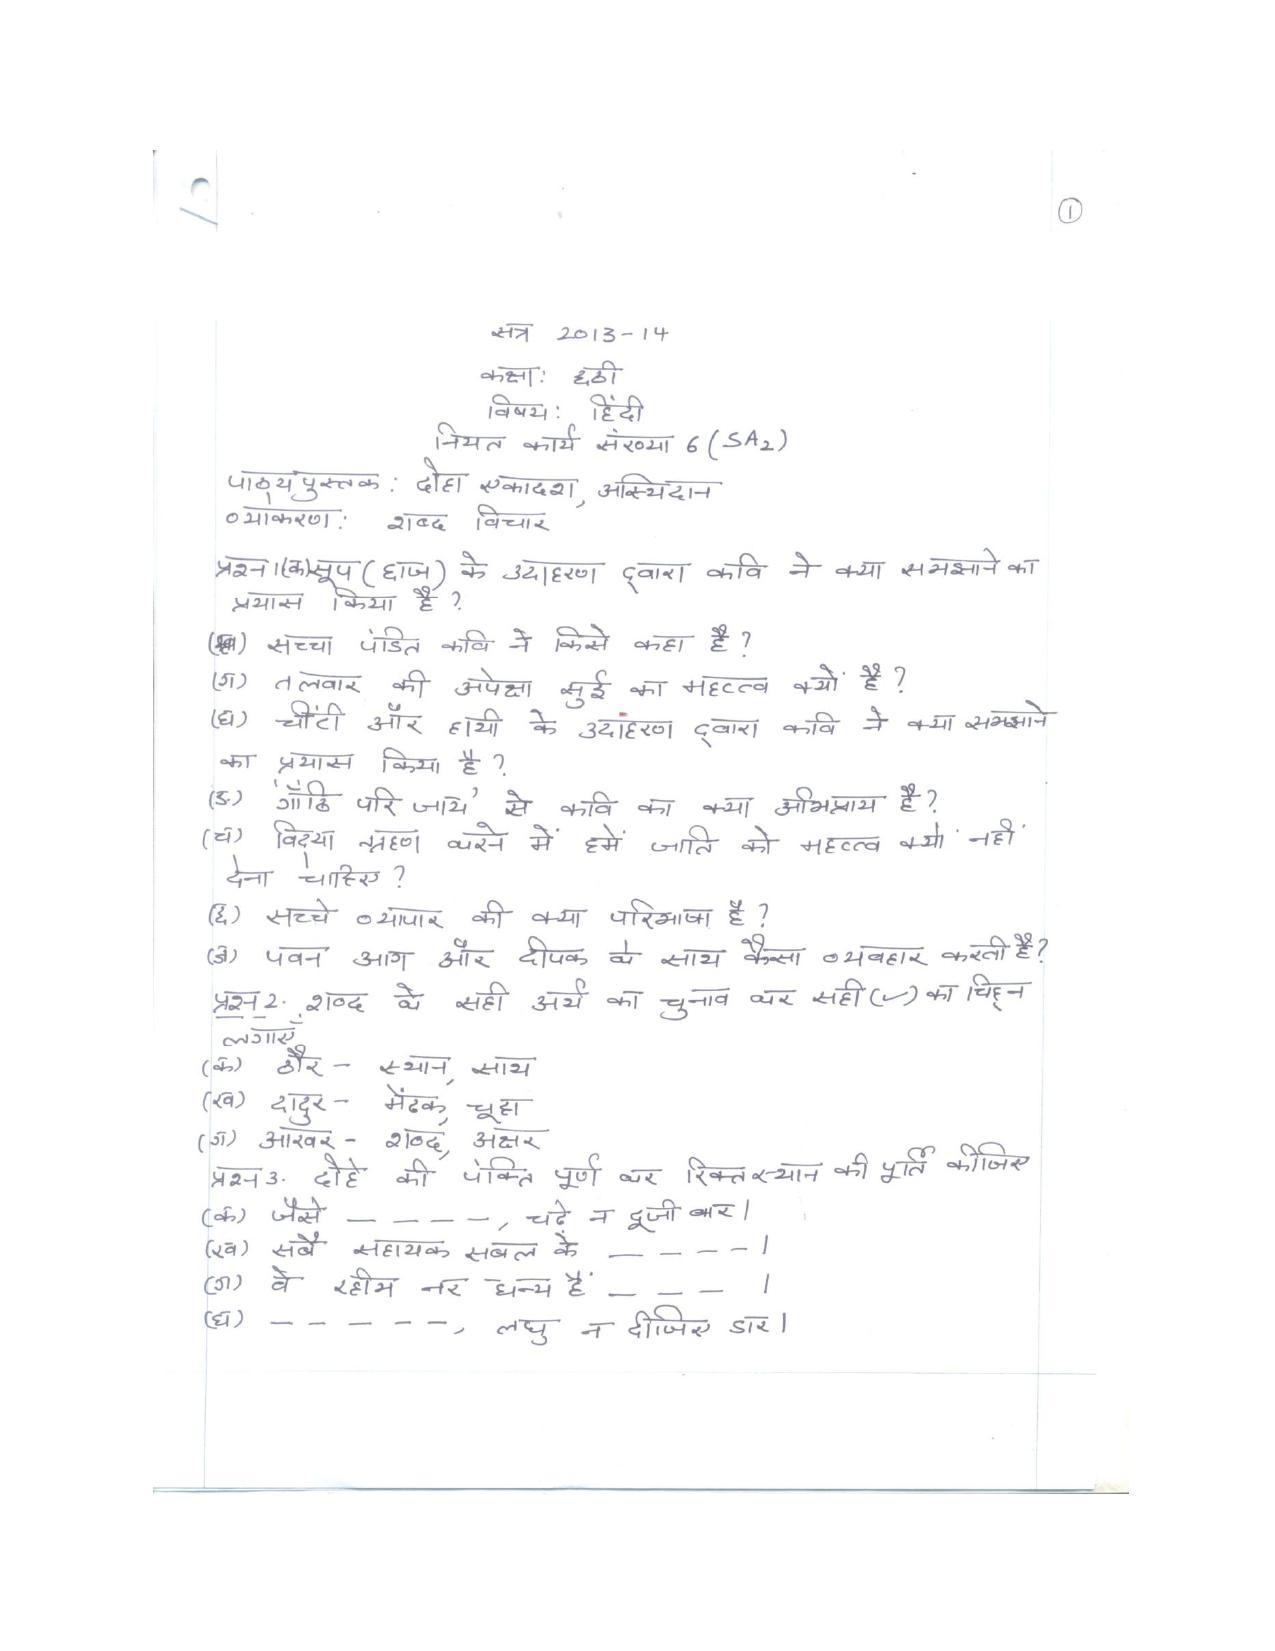 ①
सत्र 2013-14
कक्षा: छठी
विषय: हिंदी
नियत कार्य संख्या 6 (SA₂)
पाठ्यपुस्तक: दोहा एकादश, अस्थिदान
व्याकरण: शब्द विचार
प्रश्न1(क) सूप (छाज) के उदाहरण द्वारा कवि ने क्या समझाने का
प्रयास किया है?
(ख) सच्चा पंडित कवि ने किसे कहा है?
(ग) तलवार की अपेक्षा सुई का महत्त्व क्यों है?
(घ) चींटी और हाथी के उदाहरण द्वारा कवि ने क्या समझाने
का प्रयास किया है?
(ङ) 'गाँठि परि जाय' से कवि का क्या अभिप्राय है?
(च) विद्या ग्रहण करने में हमें जाति को महत्त्व क्यों नहीं
देना चाहिए?
(छ) सच्चे व्यापार की क्या परिभाषा है?
(ज) पवन आग और दीपक के साथ कैसा व्यवहार करती है?
प्रश्न 2. शब्द के सही अर्थ का चुनाव कर सही (✓) का चिह्न
लगाएँ
(क) ठौर - स्थान, साथ
(ख) दादुर - मेंढक, चूहा
(ग) आखर - शब्द, अक्षर
प्रश्न 3. दोहे की पंक्ति पूर्ण कर रिक्त स्थान की पूर्ति कीजिए
(क) जैसे – – – –, चढ़े न दूजी बार।
(ख) सबै सहायक सबल के – – – –।
(ग) वे रहीम नर धन्य हैं – – – ।
(घ) – – – – –, लघु न दीजिए डार।